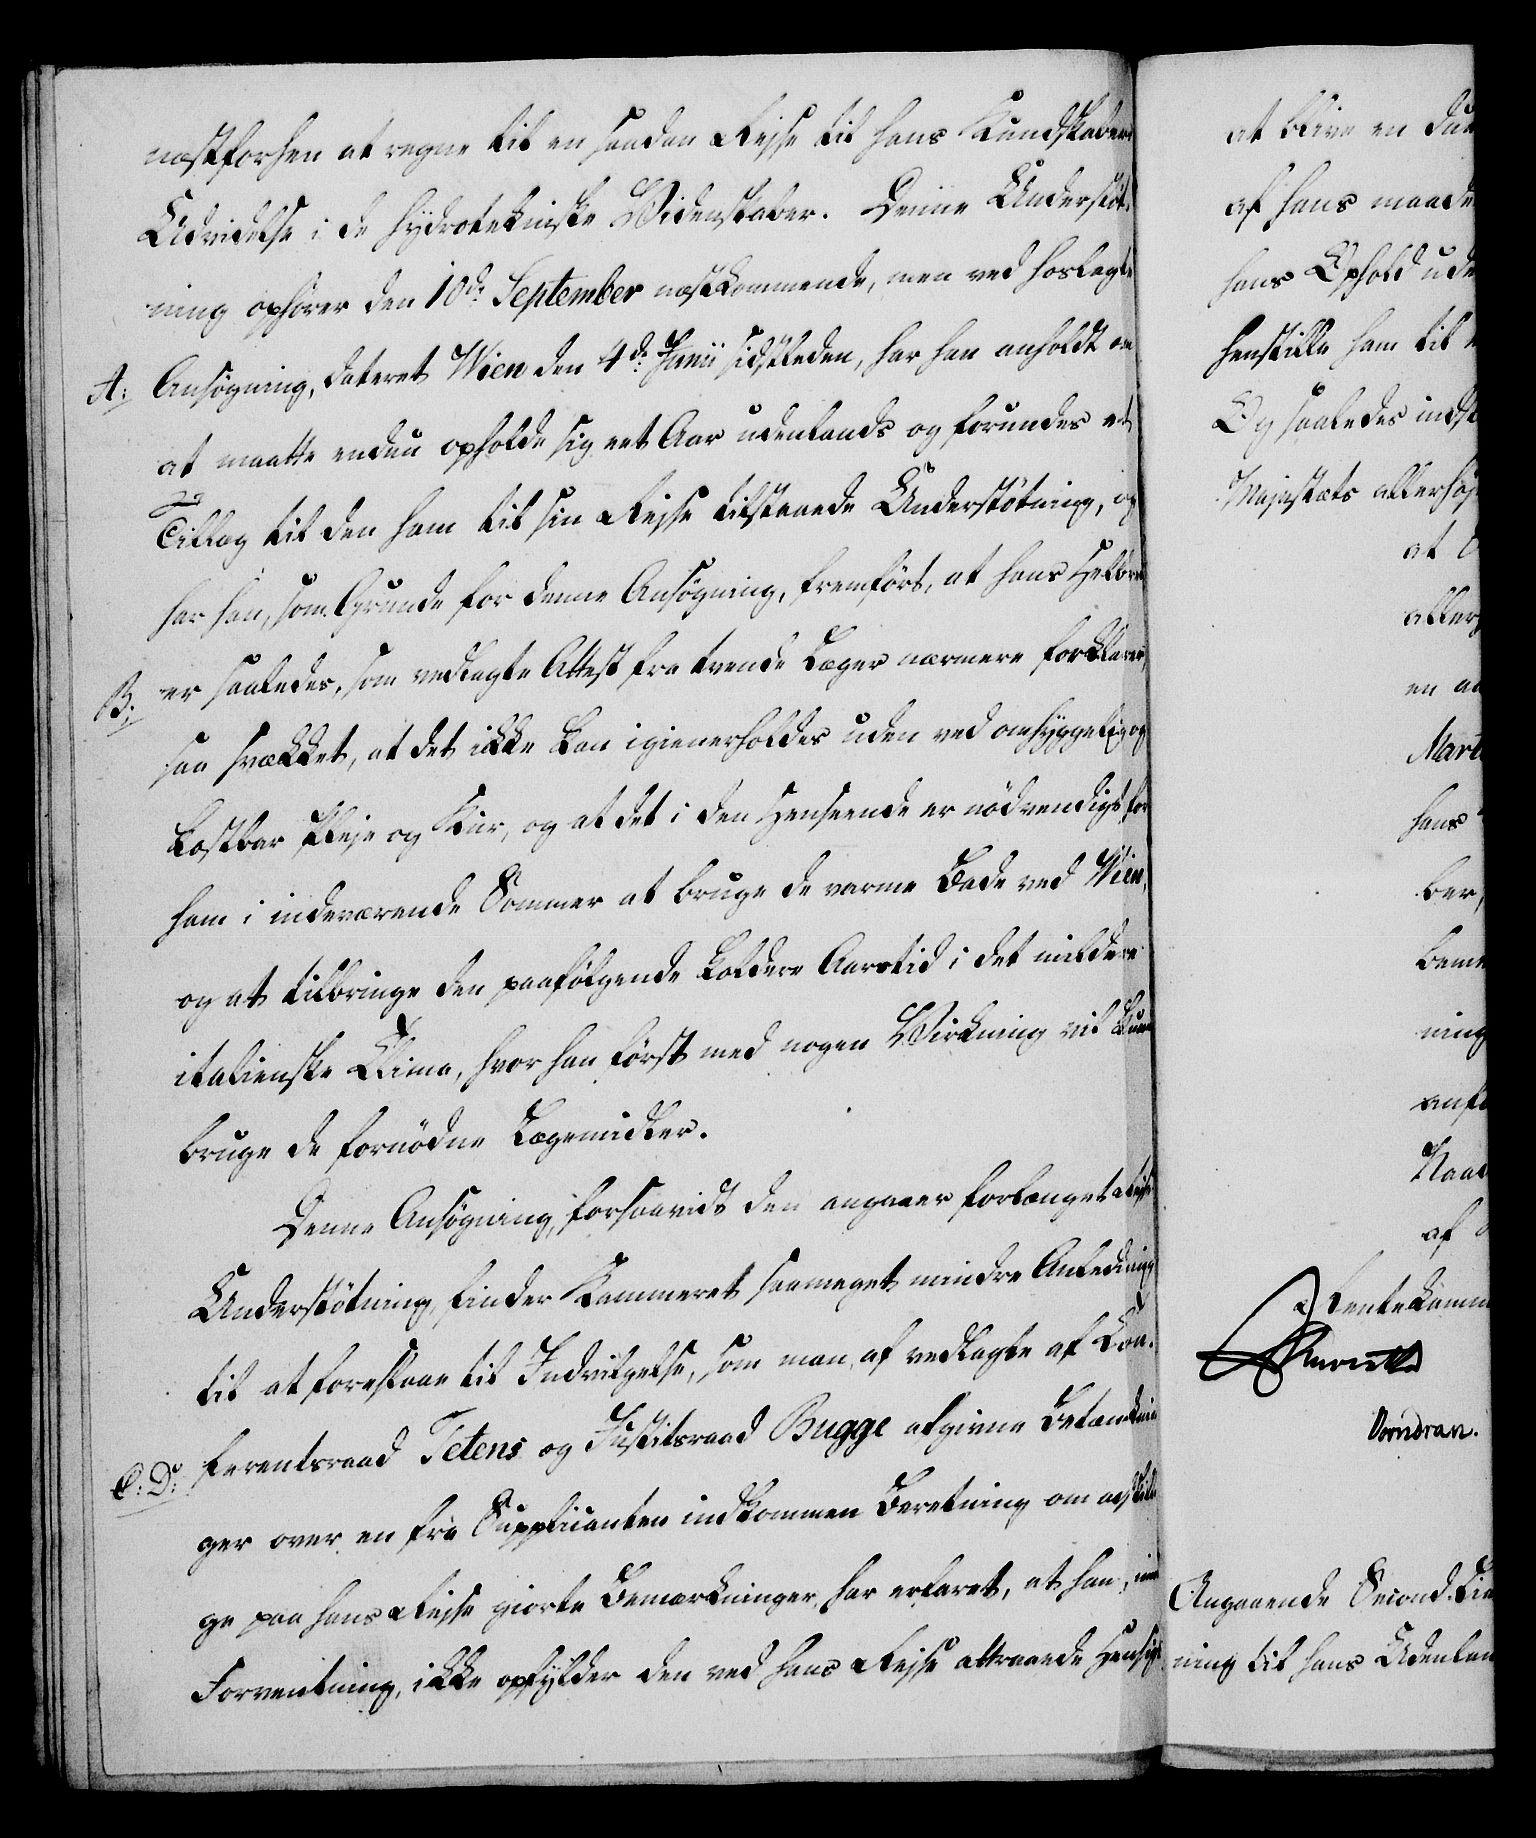 næstforhen at regne til en saadan Rejse til hans Kundskabers
Udvidelse i de hydrotekniske Videnskaber. Denne Understöt-
ning ophører den 10de September næstkommende, men ved hoslagte
A: Ansøgning, dateret Wien den 4de Junii sidstleden, har han anholdt om
at maatte endnu opholde sig eet Aar udenlands og forundes et
Tillæg til den ham til sin Rejse tilstaaede Understötning, og
har han, som Grunde for denne Ansøgning, fremført, at hans Helbred
B: er saaledes, som vedlagte Attest fra tvende Læger nærmere forklarer,
saa svækket, at det ikke kan igienerholdes uden ved omhyggelig og
kostbar Pleje og Kur, og at det i den Henseende er nödvendigt for
ham i indeværende Sommer at bruge de varme Bade ved Wien,
og at tilbringe den paafölgende koldere Aarstid i det mildere
italienske Clima, hvor han først med nogen Virkning vil kunne
bruge de fornödne Lægemidler.
Denne Ansøgning, forsaavidt den angaaer forlænget Rejse
Understötning, finder Kammeret saameget mindre Anledning
til at foreslaae til Indvilgelse, som man af vedlagte af Con-
C: D: ferentsraad Tetens og Justitsraad Bugge afgivne Betænknin-
ger over en fra Supplicanten indkommen Beretning om adskilli-
ge paa hans Rejse giorte Bemærkninger, har erfaret, at han, imod
Forventning, ikke opfylder den ved hans Rejse attraaede Hensigt
at blive en due
af hans maade
hans Ophold ude
henstille ham til
Og saaledes indst
Majestæts allerhøj
at
allerg
en an
Mart
hans
ber,
beme
ning
anfø
Naad
af
Rentekamm
Vornoran.
Angaaende Second-Lie
ning til hans Udenlan